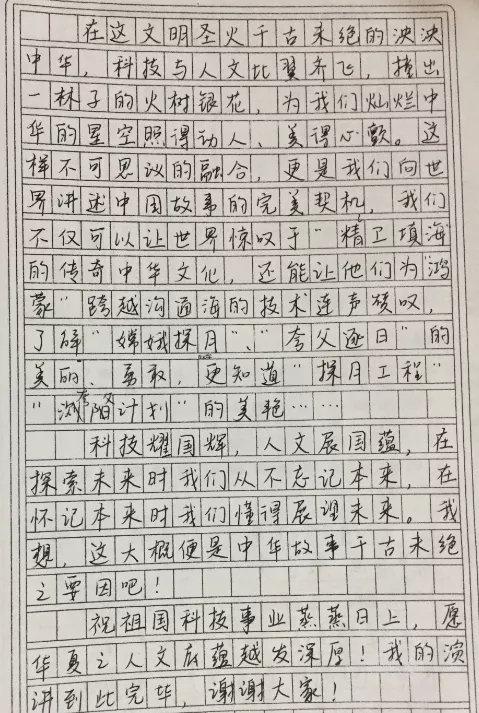 在这文明圣火千古未绝的泱泱
中华，科技与人文比翼齐飞，撞出
一林子的火树银花，为我们灿烂中
华的星空照得动人、美得心颤。这
样不可思议的融合，更是我们向世
界讲述中国故事的完美契机，我们
不仅可以让世界惊叹于“精卫填海”
的传奇中华文化，还能让他们为“鸿
蒙”跨越沟通海的技术连声硕叹，
了解“嫦娥探月”、“夸父逐日”的
美丽、勇敢，更知道“探月工程”
“计划”的美艳……
科技耀国辉，人文展国蕴，在
探索未来时我们从不忘记本来，在
怀记本来时我们懂得展望未来。我
想，这大概便是中华故事千古未绝
之要因吧！
祝祖国科技事业蒸蒸日上，愿
华夏之人文底蕴越发深厚！我的演
讲到此完毕，谢谢大家！